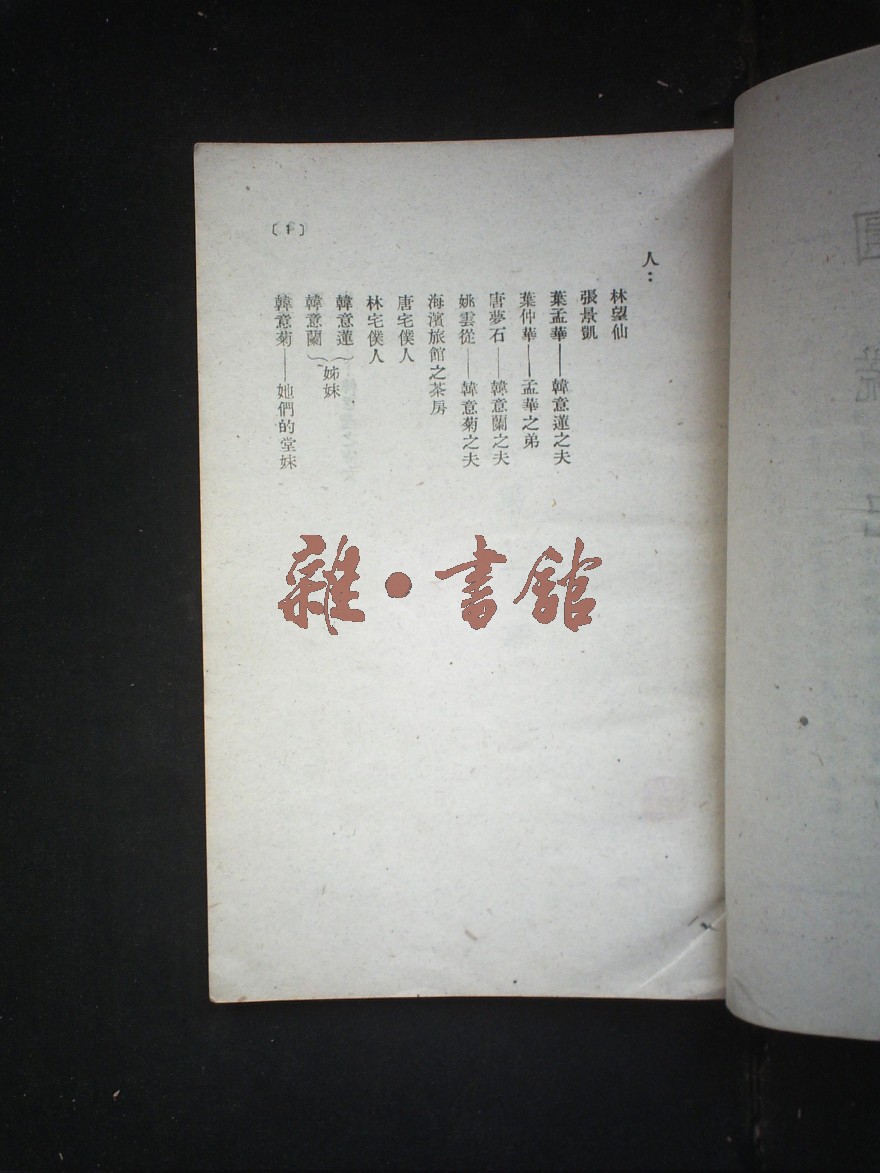 人：
林望仙
張景凱
葉孟華——韓意蓮之夫
葉仲華——孟華之弟
唐夢石——韓意蘭之夫
姚雲從——韓意菊之夫
海濱旅館之茶房
唐宅僕人
林宅僕人
韓意蓮
韓意蘭
}姊妹
韓意菊——她們的堂妹
〔1〕
雜·書館